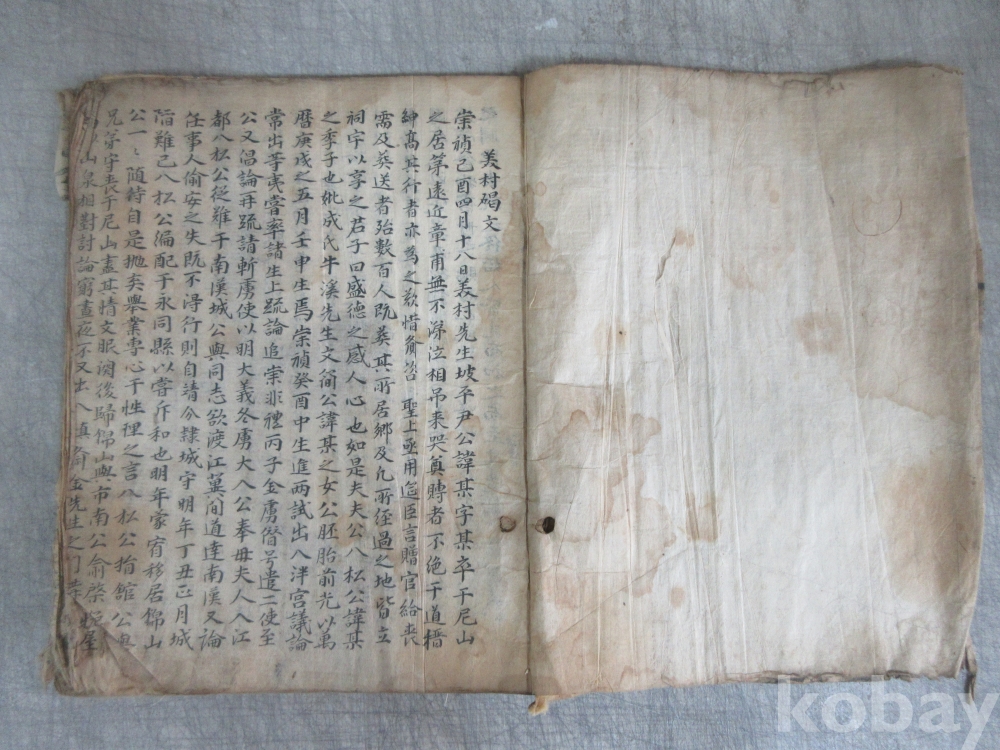 美村碣文
崇禎己酉四月十八日美村先生坡平尹公諱某字某卒于尼山
之居第遠近章甫無不涕泣相吊来哭奠賻者不絶于道搢
紳高其行者亦為之歎惜 聖上亟用筵臣言贈官給喪
需及葬送者殆數百人既葬其所居鄉及凡所經過之地皆立
祠宇以享之君子曰盛德之感人心也如是夫夫公八松公諱某
之季子也妣成氏牛溪先生文簡公諱某之女公胚胎前光以萬
曆庚戌之五月壬申生焉崇禎癸酉中生進兩試出入泮宮議論
常出等夷嘗率諸生上疏論追崇非禮丙子金虜僭号遣二使至
公又倡論再疏請斬虜使以明大義冬虜大入公奉母夫人入江
都八松公從難于南漢城公與同志欲渡江冀間道達南漢又論
任事人偷安之失既不得行則自請分隸城守明年丁丑正月城
陷難已八松公編配于永同縣以嘗斥和也明年蒙宥移居錦山
公一〻随侍自是抛矣舉業專心于性理之言八松公捐館公與
兄弟守喪于尼山盡其情文服闋後歸錦山與市南公俞棨
山泉相對討論窮晝夜不又出入慎齋金先生之門
kobay